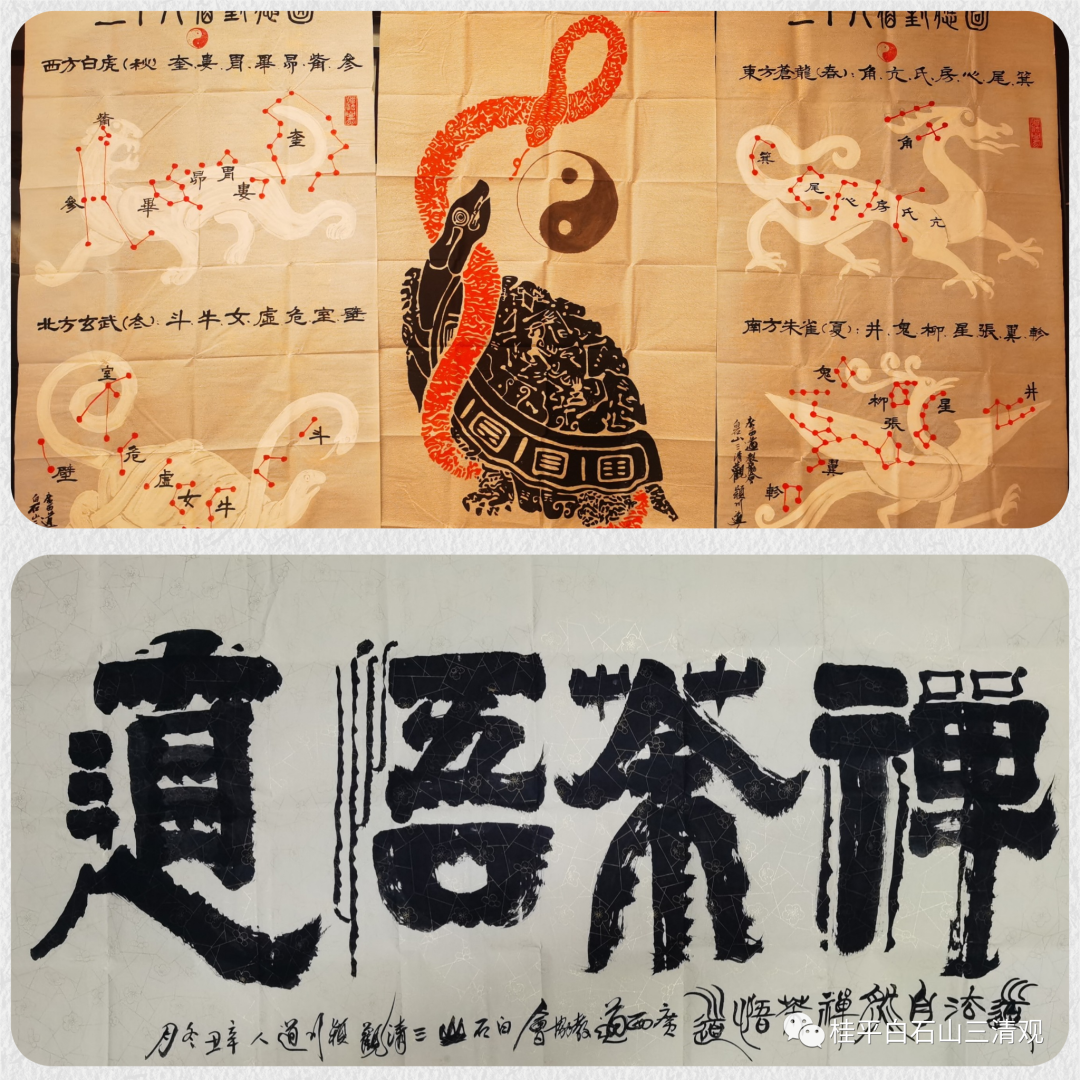 二十八宿對應圖
西方白虎(秋) 奎.婁.胃.畢.昴.觜.参
觜
奎
昴
胃
婁
参
畢
北方玄武(冬).斗.牛.女.虛.危.室.壁
室
斗
危
壁
虛
女
牛
二十八宿對應圖
東方蒼龍(春):角.亢.氐.房.心.尾.箕
角
箕
尾
心
房
氐
亢
南方朱雀(夏):井.鬼.柳.星.張.翼.軫
鬼
井
柳
星
張
翼
軫
禪茶悟道
道法自然禪茶悟道 廣西道教協會白石山三清觀 穎川道人 辛丑冬月
桂平白石山三清观